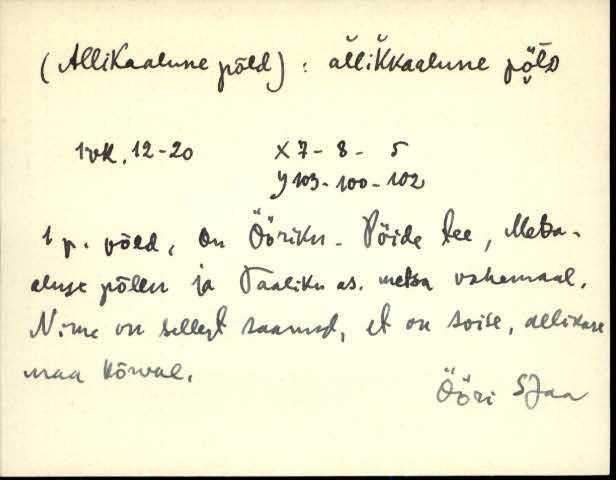 (Allikaalune põld) : ällikkaalune põld
1vk. 12-20 X 7 - 8 - 5
y 103-100-102
1 p. põld, on Ööriku - Pöide tee, Metsa-
aluse põllu ja Taaliku as. metsa vahemaal.
Nime on sellest saanud, et on soise, allikase
maa kõrval.
Ööri SJaa